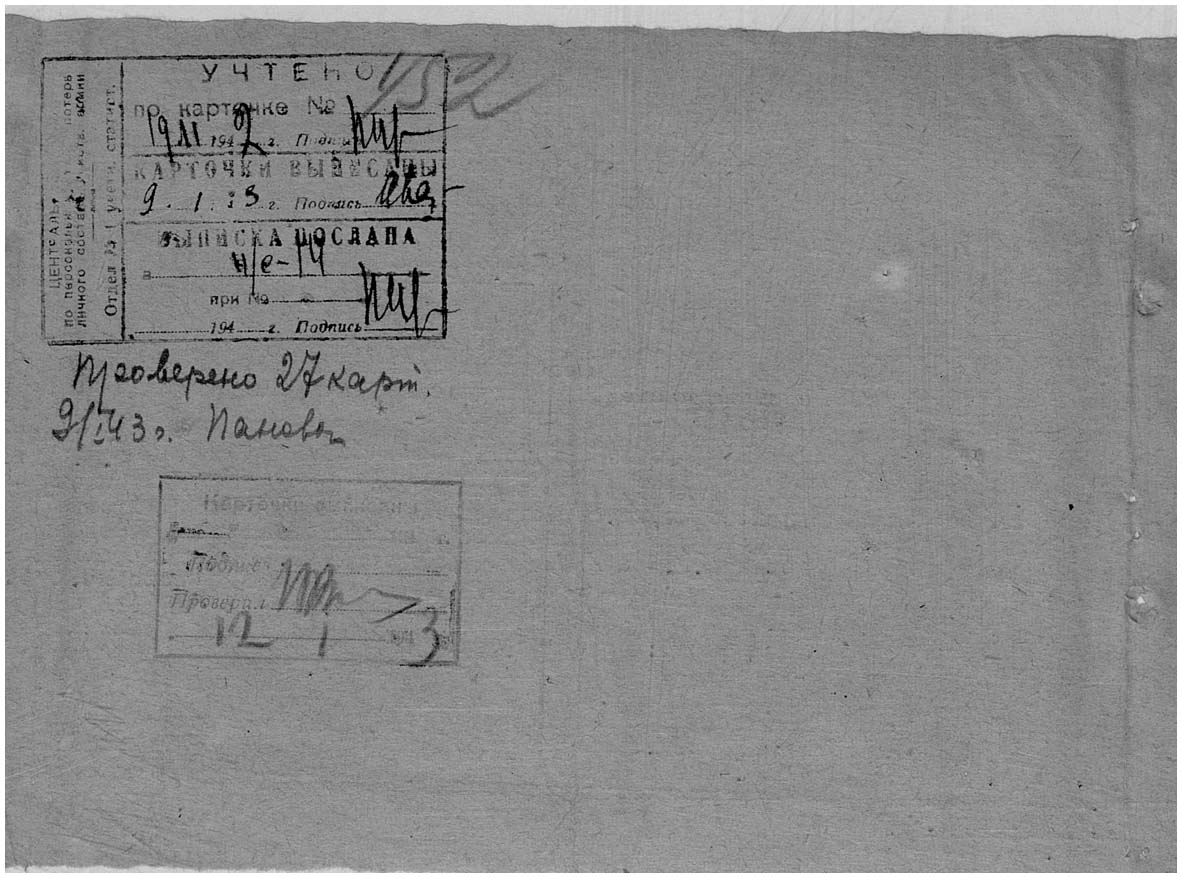 ЦЕНТРАЛЬ
по персональн потерь
личного состава действ. армии
Отдел № 1 учетн. статист.
УЧТЕНО 752
по карточке №
19 XI 1942 г. Подпись
КАРТОЧКИ ВЫПИСАНЫ
9. 1. 43 г. Подпись
ВЫПИСКА ПОСЛАНА
в н/с-14
при №
194 г. Подпись
Проверено 27 карт.
9/I 43 г. Панова
Карточки выписаны
г.
Подпись
Проверил
12 1 1943